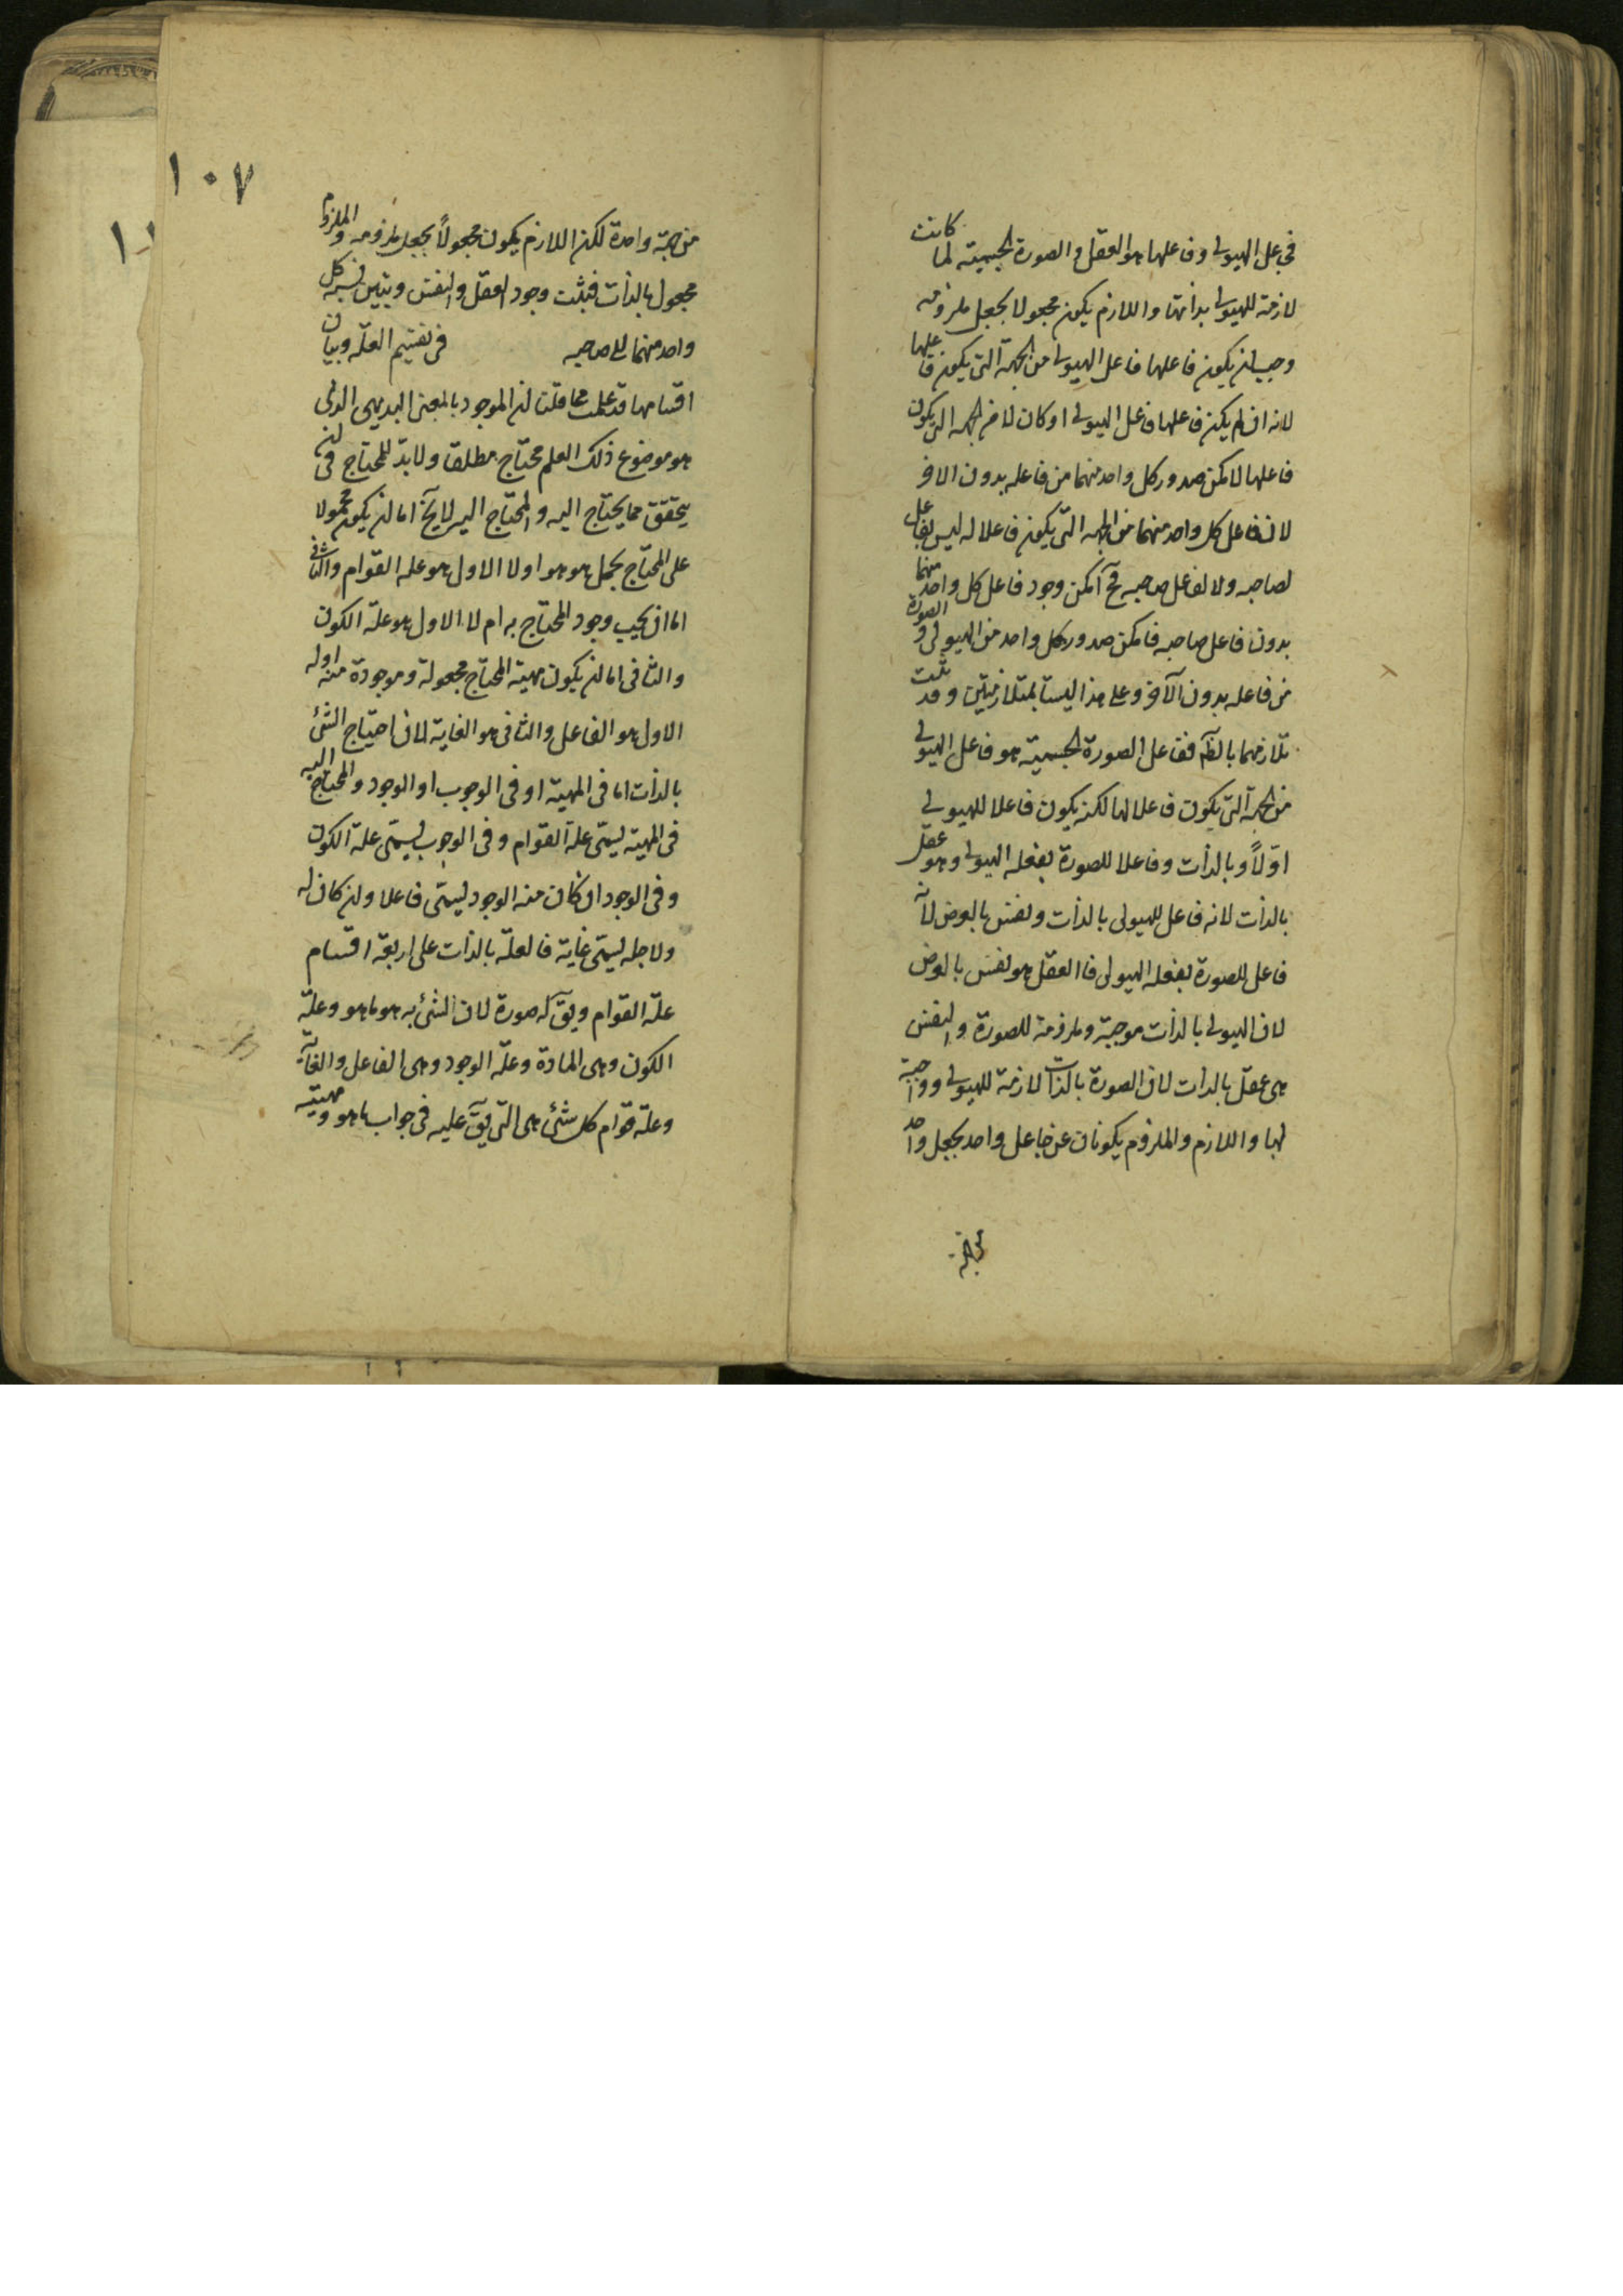 فجعل الهيولى وفاعلها هو العقل والصورة الجسمية لما كانت
لازمة للهيولى بذاتها واللازم يكون مجعولا بجعل ملزومه
وجب ان يكون فاعلها فاعل الهيولى من الجهة التى يكون فاعلها
لانه ان لم يكن فاعلها فاعل الهيولى او كان لا من الجهه التى يكون
فاعلها لامكن صدور كل واحد منهما من فاعله بدون الاخر
لان فاعل كل واحد منهما من الجهه التى يكون فاعلا له ليس بفاعل
لصاحبه ولا لفاعل صاحبه فح امكن وجود فاعل كل واحد منهما
بدون فاعل صاحبه فامكن صدور كل واحد من الهيولى والصورة
من فاعله بدون الآخر وعلى هذا ليستا بمتلازمتين وقد ثبت
تلازمهما بالظآ ففاعل الصورة الجسمية هو فاعل الهيولى
من الجهة التى يكون فاعلا لها لكنه يكون فاعلا للهيولى
اوّلاً وبالذات وفاعلا للصورة بفعله الهيولى وهو عقل
بالذات لانه فاعل للهيولى بالذات ونفس بالعرض لانه
فاعل للصورة بفعله الهيولى فالعقل هو نفس بالعرض
لان الهيولى بالذات موجبة وملزومة للصورة والنفس
هى عقل بالذات لان الصورة بالذات لازمة للهيولى وواجبة
لها واللازم والملزوم يكونان عن جاعل واحد بجعل واحد
من جهة
١٠٧
من جهة واحدة لكن اللازم يكون مجعولاً بجعل ملزومه والملزوم
مجعول بالذات فثبت وجود العقل والنفس وتبين نسبة كل
واحد منهما الى صاحبه فى تقسيم العلّة وبيان
اقسامها قد علمت مما قلنا ان الموجود بالمعنى البديهى الذى
هو موضوع ذلك العلم محتاج مطلقا ولا بدّ للمحتاج فى ان
يتحقق مما يحتاج اليه والمحتاج اليه لا يخ اما ان يكون محمولا
على المحتاج بحمل هو هو اولا الاول هو علة القوام والثانى
اما ان يجب وجود المحتاج به ام لا الاول هو علّة الكون
والثانى اما ان يكون مهية المحتاج مجعولة وموجودة منه او له
الاول هو الفاعل والثانى هو الغاية لان احتياج الشئ
بالذات اما فى المهية او فى الوجوب او الوجود والمحتاج اليه
فى المهية يسمّى علة القوام وفى الوجوب يسمّى علة الكون
وفى الوجود ان كان منه الوجود يسمّى فاعلا وان كان له
ولاجله يسمّى غاية فالعلّة بالذات على اربعة اقسام
علّة القوام ويقآ له صورة لان الشئ به هو ما هو وعلّة
الكون وهى المادة وعلّة الوجود وهى الفاعل والغاية
وعلّة قوام كل شئ هى التى يقآ عليه فى جواب ما هو ومهيته